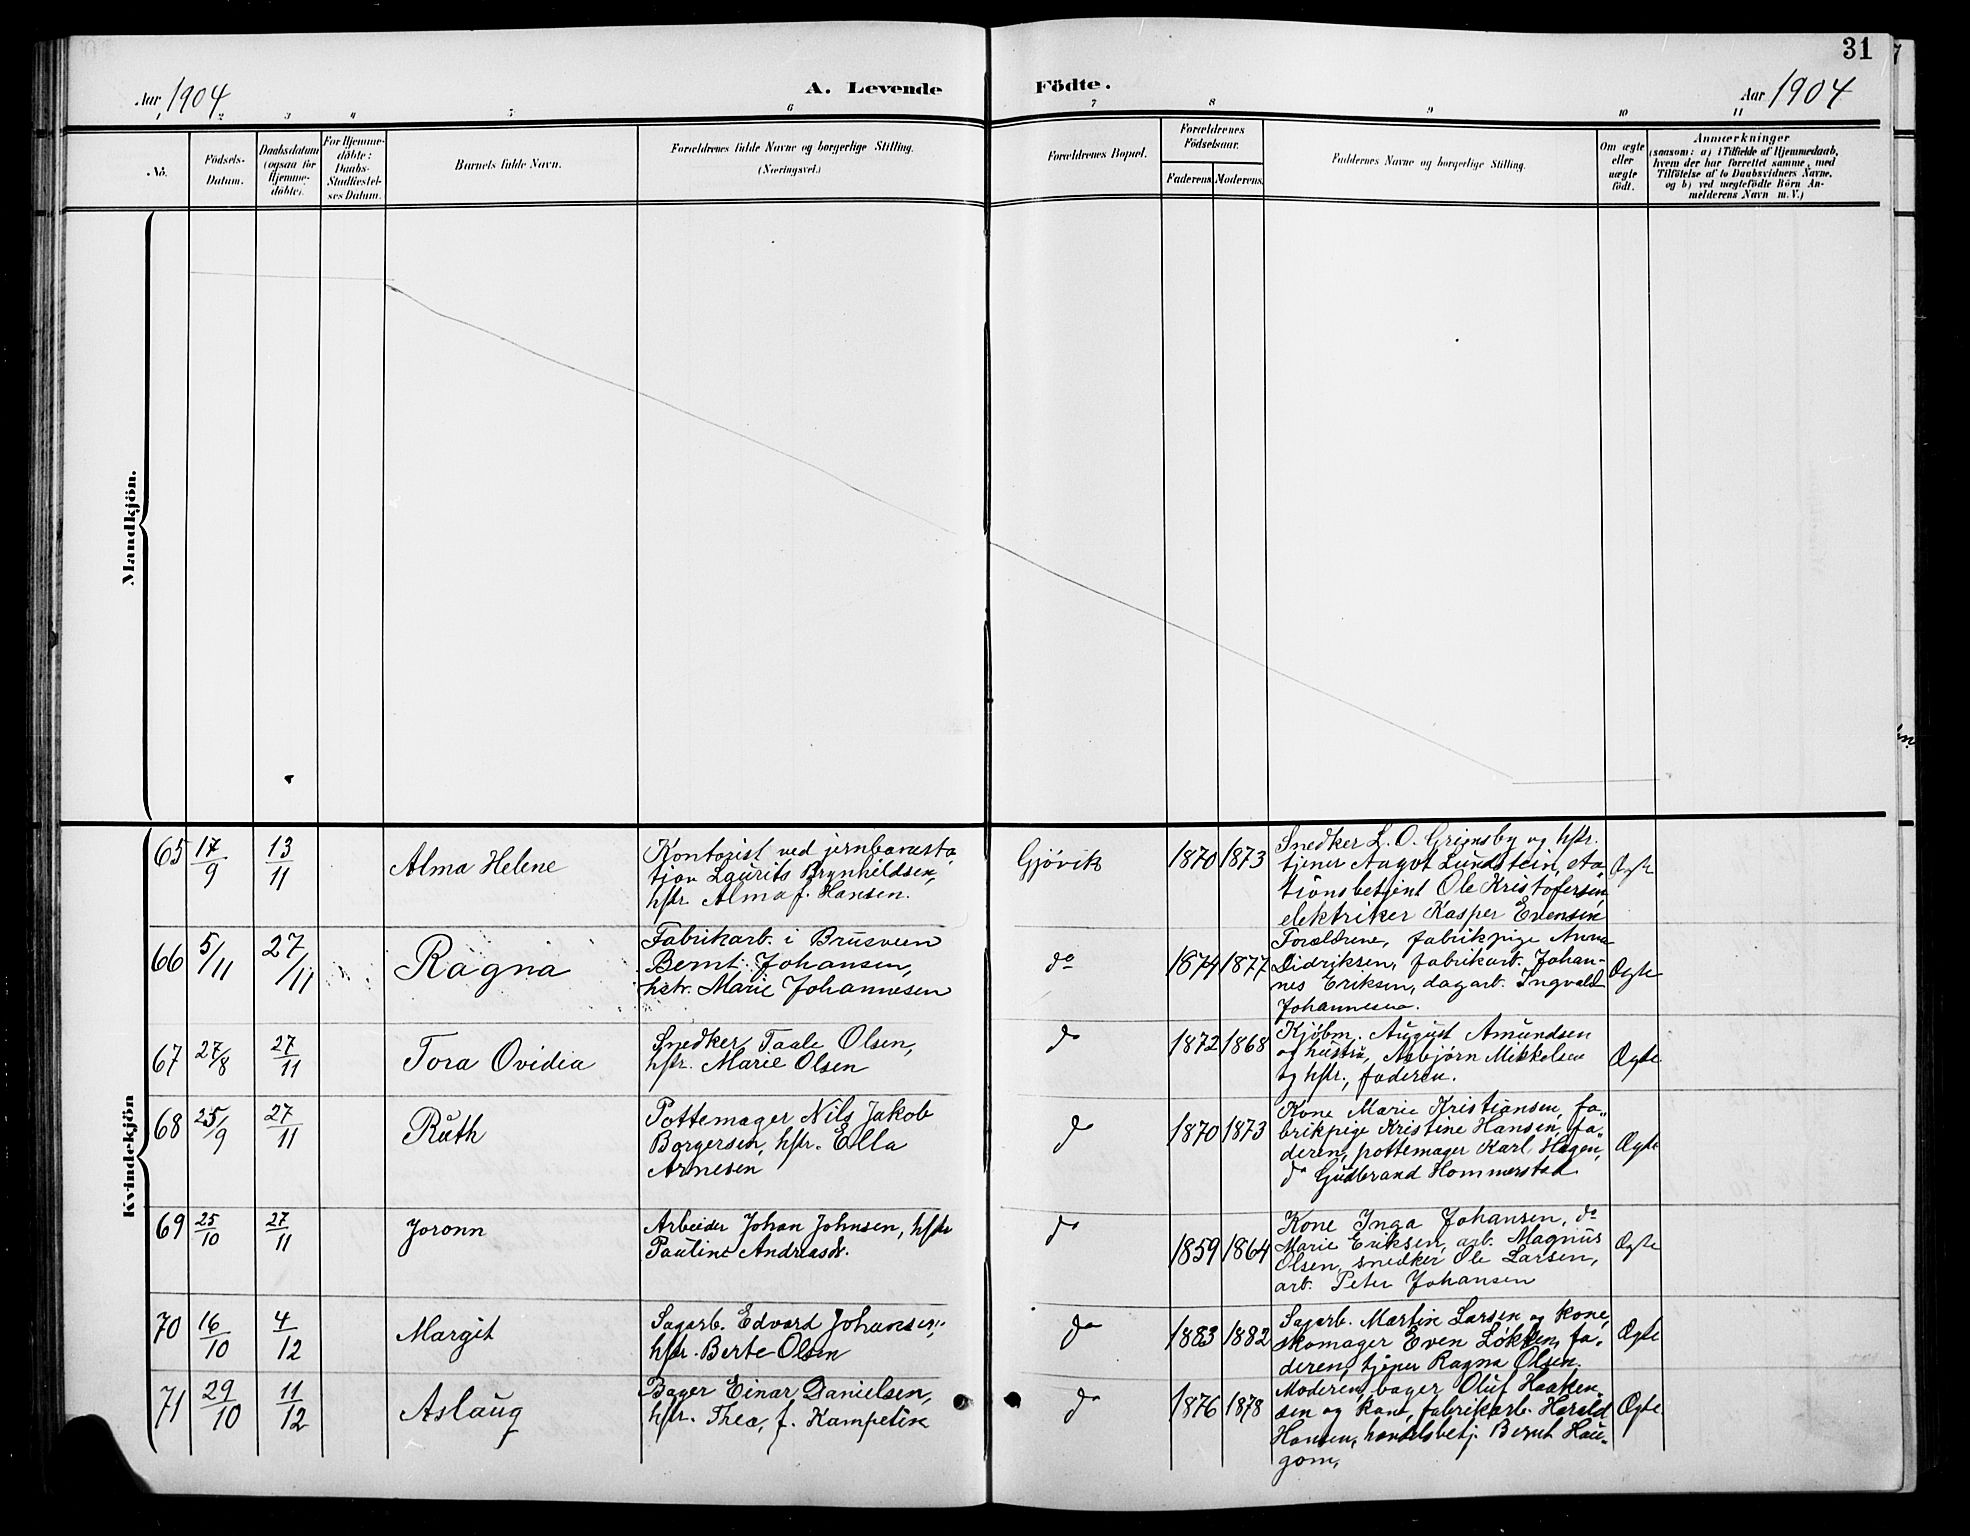 31
Aar 1904
A. Levende
Födte.
Aar 1904
1 2 3 4 5 6 7 8 9 10 11
No.
Födsels-
Datum.
Daabsdatum
(ogsaa for
Hjemme-
döbte).
For Hjemme-
döbte:
Daabs-
Stadfæstel-
ses Datum.
Barnets fulde Navn.
Forældrenes fulde Navne og borgerlige Stilling.
(Næringsvei.)
Forældrenes Bopæl.
Forældrenes
Födselsaar.
Faderens. Moderens.
Faddernes Navne og borgerlige Stilling.
Om ægte
eller
uægte
født.
Anmærkninger
(saasom: a) i Tilfælde af Hjemmedaab,
hvem der har forrettet samme, med
Tilföielse af to Daabsvidners Navne,
og b) ved uægtefödte Börn An-
melderens Navn m.V.)
Mandkjön.
Kvindekjön
65 17/9 13/11
Alma Helene
Kontorist ved jernbanesta-
tion Laurits Brynhildsen,
hstr. Alma f. Hansen.
Gjøvik
1870 1873
Snedker L. O. Grimsby og hstr.
tjener Aagot Lundstein, sta-
tionsbetjent Ole Kristofersen,
elektriker Kasper Evensen
Ægte
66 5/11 27/11
Ragna
Fabrikarb. i Brusveen
Bernt Johansen,
hstr. Marie Johannesen
do
1874 1877
Forældrene, fabrikpige Anna
Didriksen, fabrikarb. Johan-
nes Eriksen, dagarb. Ingvald
Johannesen.
Ægte
67 27/8 27/11
Tora Ovidia
Snedker Taale Olsen,
hstr. Marie Olsen
do
1872 1868
Kjøbm. August Amundsen
og hustru, Asbjørn Mikkelsen
og hstr., faderen.
Ægte
68 25/9 27/11
Ruth
Pottemager Nils Jakob
Borgersen, hstr. Ella
Arnesen
do
1870 1873
Kone Marie Kristiansen, fa-
brikpige Kristine Hansen, fa-
deren, pottemager Karl Hagen,
do Gudbrand Hommerstad
Ægte
69 25/10 27/11
Joronn
Arbeider Johan Johnsen, hstr
Pauline Andreasdr.
do
1859 1864
Kone Inga Johansen, do
Marie Eriksen, arb. Magnus
Olsen, snedker Ole Larsen,
arb. Peter Johansen
Ægte
70 16/10 4/12
Margit
Sagarb. Edvard Johansen,
hstr. Berte Olsen
do
1883 1882
Sagarb. Martin Larsen og kone,
skomager Even Løkken, fa-
deren, tjener Ragna Olsen.
Ægte
71 29/10 11/12
Aslaug
Bager Einar Danielsen,
hstr. Thea, f. Kampesen
do
1876 1878
Moderen, bager Oluf Haaken-
sen og kone, fabrikarb. Harald
Hansen, handelsbetj. Bernt Hau-
gom,
Ægte